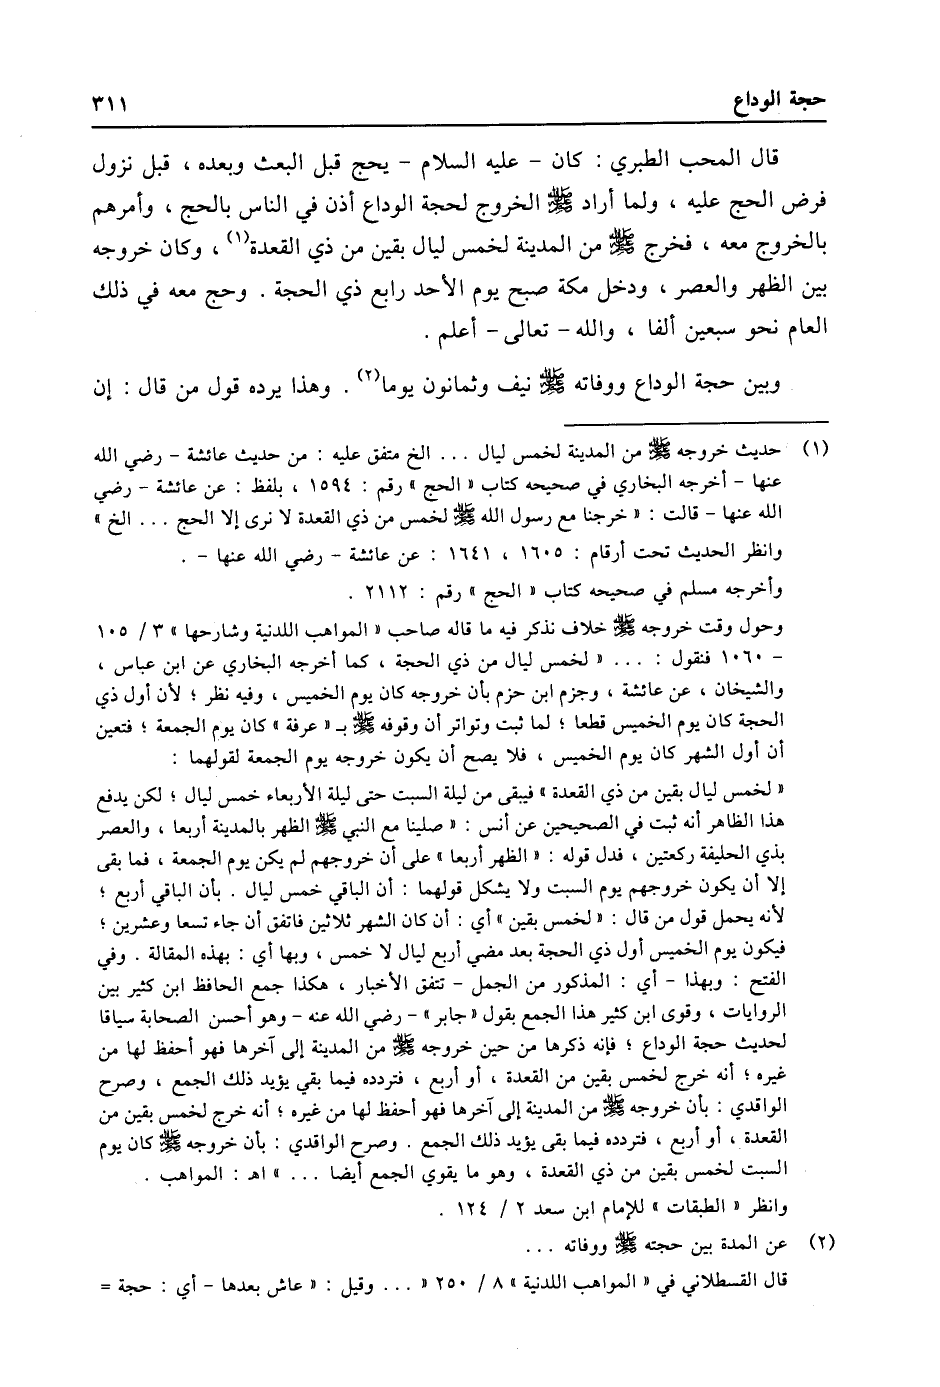 حجة الوداع ٣١١
قال المحب الطبري : كان - عليه السلام - يحج قبل البعث وبعده ، قبل نزول
فرض الحج عليه ، ولما أراد ﷺ الخروج لحجة الوداع أذن في الناس بالحج ، وأمرهم
بالخروج معه ، فخرج ﷺ من المدينة لخمس ليال بقين من ذي القعدة(١) ، وكان خروجه
بين الظهر والعصر ، ودخل مكة صبح يوم الأحد رابع ذي الحجة . وحج معه في ذلك
العام نحو سبعين ألفا ، والله - تعالى - أعلم .
وبين حجة الوداع ووفاته ﷺ نيف وثمانون يوما(٢) . وهذا يرده قول من قال : إن
(١) حديث خروجه ﷺ من المدينة لخمس ليال ... الخ متفق عليه : من حديث عائشة - رضي الله
عنها - أخرجه البخاري في صحيحه كتاب « الحج » رقم : ١٥٩٤ ، بلفظ : عن عائشة - رضي
الله عنها - قالت : « خرجنا مع رسول الله ﷺ لخمس من ذي القعدة لا نرى إلا الحج ... الخ »
وانظر الحديث تحت أرقام : ١٦٠٥ ، ١٦٤١ : عن عائشة - رضي الله عنها - .
وأخرجه مسلم في صحيحه كتاب « الحج » رقم : ٢١١٢ .
وحول وقت خروجه ﷺ خلاف نذكر فيه ما قاله صاحب « المواهب اللدنية وشارحها » ٣ / ١٠٥
- ١٠٦٠ فنقول : ... « لخمس ليال من ذي الحجة ، كما أخرجه البخاري عن ابن عباس ،
والشيخان ، عن عائشة ، وجزم ابن حزم بأن خروجه كان يوم الخميس ، وفيه نظر ؛ لأن أول ذي
الحجة كان يوم الخميس قطعا ؛ لما ثبت وتواتر أن وقوفه ﷺ بـ « عرفة » كان يوم الجمعة ؛ فتعين
أن أول الشهر كان يوم الخميس ، فلا يصح أن يكون خروجه يوم الجمعة لقولهما :
« لخمس ليال بقين من ذي القعدة » فيبقى من ليلة السبت حتى ليلة الأربعاء خمس ليال ؛ لكن يدفع
هذا الظاهر أنه ثبت في الصحيحين عن أنس : « صلينا مع النبي ﷺ الظهر بالمدينة أربعا ، والعصر
بذي الحليفة ركعتين ، فدل قوله : « الظهر أربعا » على أن خروجهم لم يكن يوم الجمعة ، فما بقى
إلا أن يكون خروجهم يوم السبت ولا يشكل قولهما : أن الباقي خمس ليال . بأن الباقي أربع ؛
لأنه يحمل قول من قال : « لخمس بقين » أي : أن كان الشهر ثلاثين فاتفق أن جاء تسعا وعشرين ؛
فيكون يوم الخميس أول ذي الحجة بعد مضي أربع ليال لا خمس ، وبها أي : بهذه المقالة . وفي
الفتح : وبهذا - أي : المذكور من الجمل - تتفق الأخبار ، هكذا جمع الحافظ ابن كثير بين
الروايات ، وقوى ابن كثير هذا الجمع بقول « جابر » - رضي الله عنه - وهو أحسن الصحابة سياقا
لحديث حجة الوداع ؛ فإنه ذكرها من حين خروجه ﷺ من المدينة إلى آخرها فهو أحفظ لها من
غيره ؛ أنه خرج لخمس بقين من القعدة ، أو أربع ، فتردده فيما بقي يؤيد ذلك الجمع ، وصرح
الواقدي : بأن خروجه ﷺ من المدينة إلى آخرها فهو أحفظ لها من غيره ؛ أنه خرج لخمس بقين من
القعدة ، أو أربع ، فتردده فيما بقى يؤيد ذلك الجمع . وصرح الواقدي : بأن خروجه ﷺ كان يوم
السبت لخمس بقين من ذي القعدة ، وهو ما يقوي الجمع أيضا ... » اهـ : المواهب .
وانظر « الطبقات » للإمام ابن سعد ٢ / ١٢٤ .
(٢) عن المدة بين حجته ﷺ ووفاته ...
قال القسطلاني في « المواهب اللدنية » ٨ / ٢٥٠ « ... وقيل : « عاش بعدها - أي : حجة =